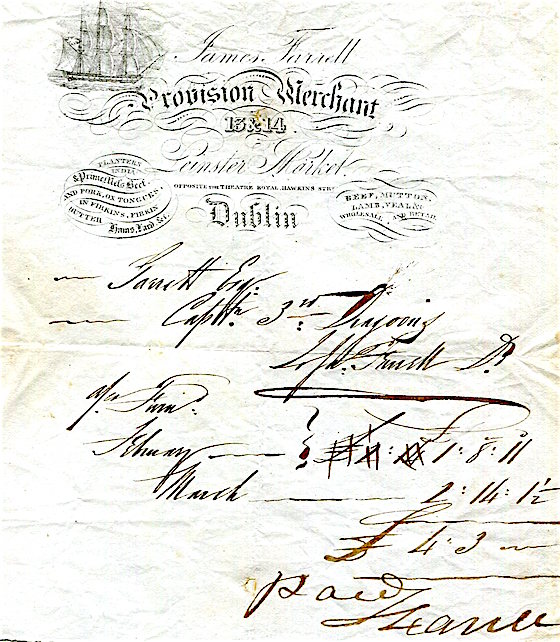 James Farrell
Provision Merchant
13 & 14
Leinster Market
OPPOSITE THE THEATRE ROYAL, HAWKINS STR
Dublin
PLANTERS
INDIA
& Prime Mess Beef,
AND PORK, OX TONGUES,
IN FIRKINS, FIRKIN
BUTTER Hams, Lard &c.
BEEF, MUTTON,
LAMB, VEAL &c
WHOLESALE AND RETAIL
— Garrett Esq.
— Captn. 3rd Dragoons
Farrell Dr
March — 2: 14: 1½
£ 4: 3 —
paid